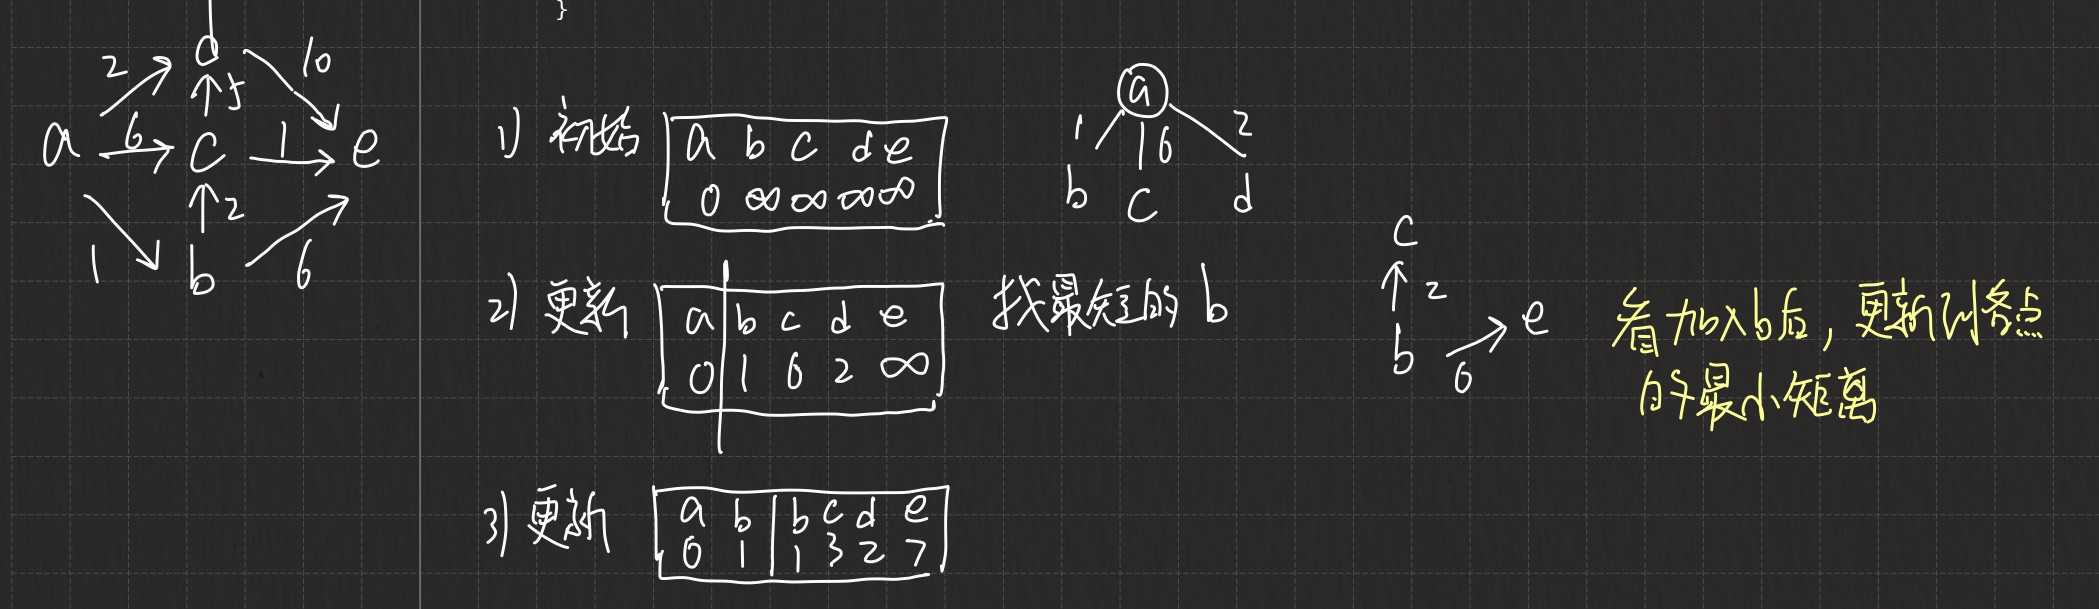 }
d
2 10
5
a 6 c 1 e
2
1 b 6
1) 初始
a b c d e
0 ∞ ∞ ∞ ∞
a
1 6 2
b c d
2) 更新
a b c d e
0 1 6 2 ∞
找最短的 b
c
2
b e
6
看加入b后, 更新到各点
的最小距离
3) 更新
a b b c d e
0 1 1 3 2 7